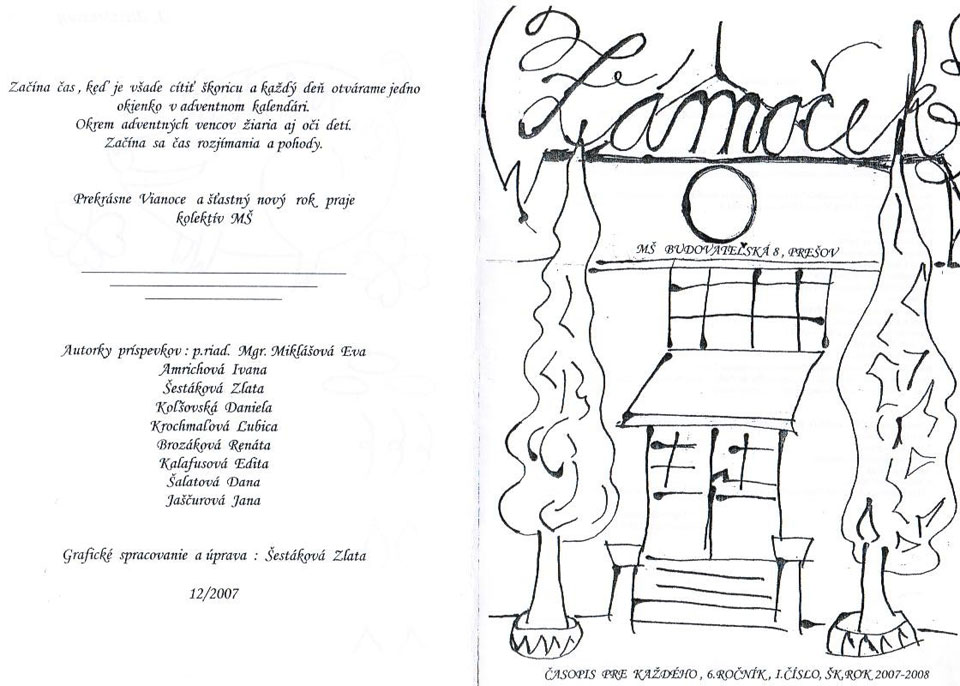 Začína čas , keď je všade cítiť škoricu a každý deň otvárame jedno
okienko v adventnom kalendári.
Okrem adventných vencov žiaria aj oči detí.
Začína sa čas rozjímania a pohody.
Prekrásne Vianoce a šťastný nový rok praje
kolektív MŠ
Autorky príspevkov : p.riad. Mgr. Miklášová Eva
Amrichová Ivana
Šestáková Zlata
Koľšovská Daniela
Krochmaľová Ľubica
Brozáková Renáta
Kalafusová Edita
Šalatová Dana
Jaščurová Jana
Grafické spracovanie a úprava : Šestáková Zlata
12/2007
Zámoček
MŠ BUDOVATEĽSKÁ 8 , PREŠOV
ČASOPIS PRE KAŽDÉHO , 6.ROČNÍK , I.ČÍSLO, ŠK.ROK 2007-2008